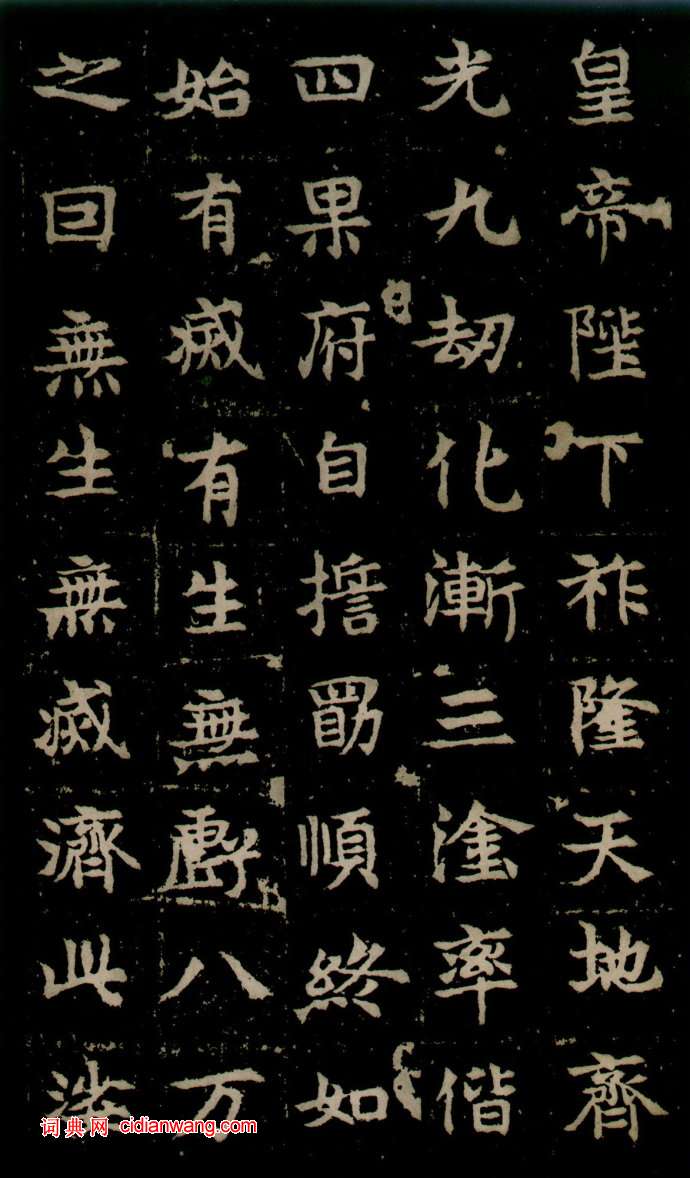 皇帝陛下祚隆天地齊
光九劫化漸三塗率偕
四果府自擔勗順終如
始有滅有生無虧八万
之囙無生無滅濟此
词典网 cidianwang.com